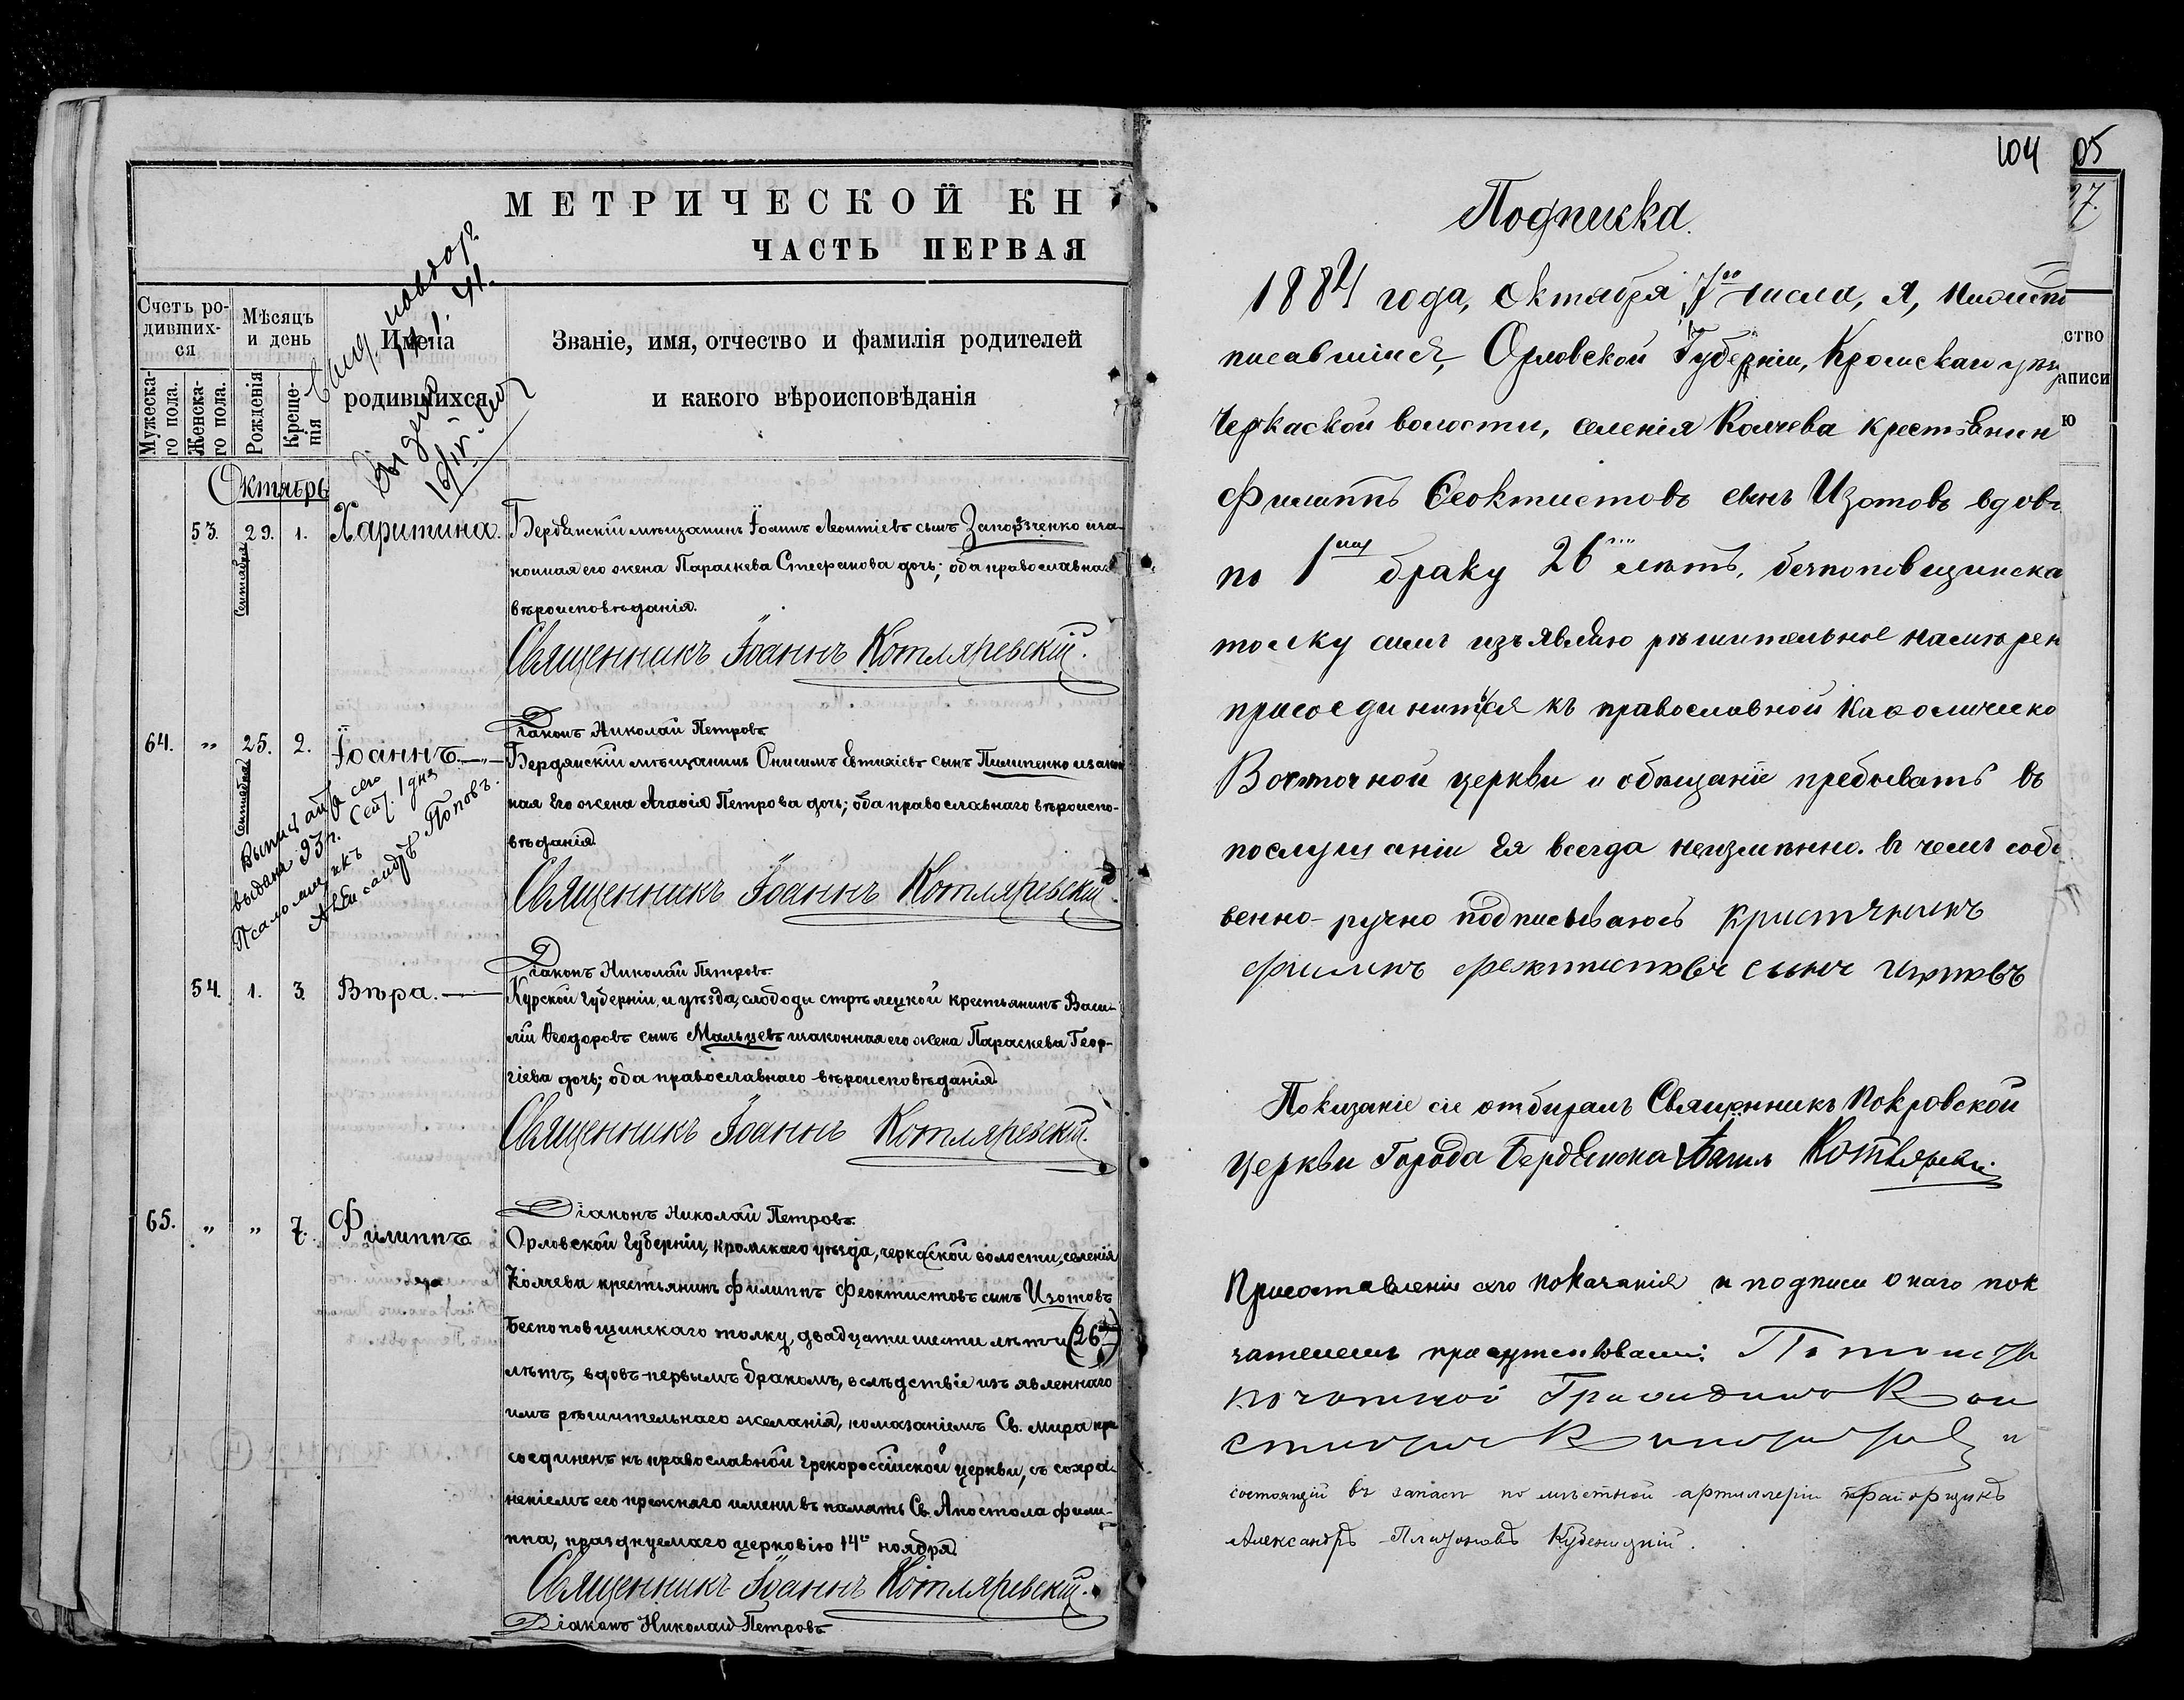 МЕТРИЧЕСКОЙ КН
ЧАСТЬ ПЕРВАЯ
Счетъ ро-
дивших-
ся
Мужеска-
го пола.
Женска-
го пола.
Мѣсяцъ
и день
Рожденія
Креще-
нія
Имена
родившихся
Званіе, имя, отчество и фамилія родителей
и какого вѣроисповѣданія
Выдано
Октябрь
53. 29. 1. Харитина.
Сентября
Бердянскій мѣщанинъ Іоаннъ Леонтіевъ сынъ Запорозченко и за-
конная его жена Параскева Стефанова дочь; оба православнаго
вѣроисповѣданія.
Священникъ Іоаннъ Котляревскій.
Діаконъ Николай Петровъ
64. " 25. 2. Іоаннъ.
Сентября
Бердянскій мѣщанинъ Онисимъ Евтихіевъ сынъ Пилипенко и закон
ная его жена Агафія Петрова дочь; оба православнаго вѣроиспо-
вѣданія
Священникъ Іоаннъ Котляревскій
Выпись
выдана 93 г. Сен. 1 дня
Псаломщикъ
Александръ Поповъ.
Діаконъ Николай Петровъ
54. 1. 3. Вѣра.
Курской губерніи, и уѣзда, слободы стрѣлецкой крестьянинъ Васи-
лій Ѳеодоровъ сынъ Мальцевъ и законная его жена Параскева Геор-
гіева дочь; оба православнаго вѣроисповѣданія
Священникъ Іоаннъ Котляревскій.
Діаконъ Николай Петровъ.
65. " " 7. Филиппъ
Орловской губерніи, кромскаго уѣзда, черкаской волости, селенія
Колчева крестьянинъ Филиппъ Феоктистовъ сынъ Изотовъ
Беспоповщинскаго толку, двадцати шести лѣтъ (26)
лѣтъ, вдовъ первымъ бракомъ, вслѣдствіе изъявленнаго
имъ рѣшительнаго желанія, помазаніемъ Св. мира при
соединенъ къ православной грекороссійской церкви, съ сохра-
неніемъ его прежнаго имени въ память Св. Апостола Фили-
ппа, празднуемаго церковію 14го ноября.
Священникъ Іоаннъ Котляревскій.
Діаконъ Николай Петровъ
104
05
Подписка.
1884 года, Октября 7го числа, я, нижепо
писавшійся, Орловской Губерніи, Кромскаго уѣз
Черкаской волости, селенія Колчева крестьянин
Филиппъ Ѳеоктистовъ сынъ Изотовъ вдов
по 1му браку 26 лѣтъ, безпоповщинска
толку симъ изъявляю рѣшительное намѣрен
присоединиться къ православной Каѳолическо
Восточной церкви и обѣщаніе пребывать въ
послушаніи Ея всегда неизмѣнно. въ чемъ собс
венно-ручно подписываюсь Кристянинъ
филипъ фектистовъ сынъ изотовъ
Показаніе сіе отбиралъ Священникъ Покровской
церкви Города Бердянска Іоаннъ Котляревскій
При составленіи сего показанія и подписи онаго пок
зателемъ присутствовали: Потомств
почотной Гражданинъ Кон
стантинъ
и
состоящій въ запасѣ по мѣстной артиллеріи прапорщикъ
Александръ Платоновъ
ство
аписи
ю
7.